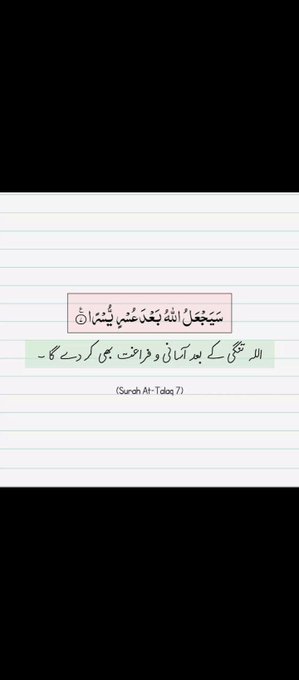 سَيَجْعَلُ اللّٰهُ بَعْدَ عُسْرٍ يُّسْرًا ۝٧
اللہ تنگی کے بعد آسانی و فراغت بھی کر دے گا ۔
(Surah At-Talaq 7)